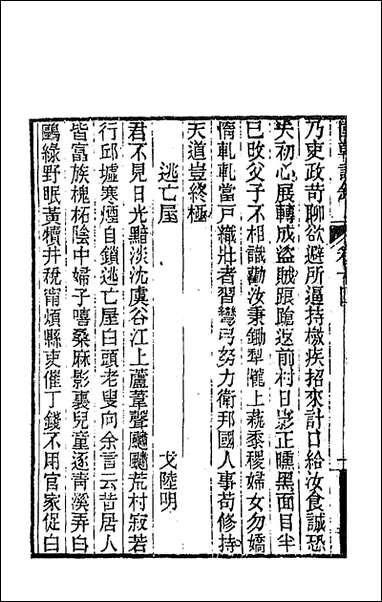 乃吏政苛聊欲避所逼持檄疾招來計口給汝食誠恐
失初心展轉成盜賊踉蹌返前村日影正曛黑面目半
已改父子不相識勸汝秉鋤犁隴上蓺黍稷婦女勿嬌
惰軋軋當戶織壯者習彎弓努力衛邦國人事苟修持
天道豈終極
逃亡屋 戈陸明
君不見日光黯淡沈虞谷江上蘆葦聲飀飀荒村寂若
行邱墟寒煙自鎖逃亡屋白頭老叟向余言云昔居人
皆富族槐柘陰中婦子嘻桑麻影裏兒童逐青溪弄白
鷗綠野眠黃犢井稅甯煩縣吏催丁錢不用官家促白